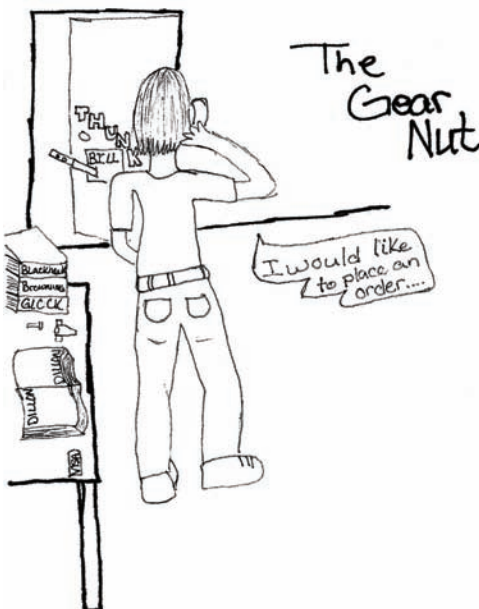 The
Gear
Nut
THUNK
BILL
I would like
to place an
order....
BLACKHAWK
BROWNING
GLOCK
DILLON
DILLON
VISA